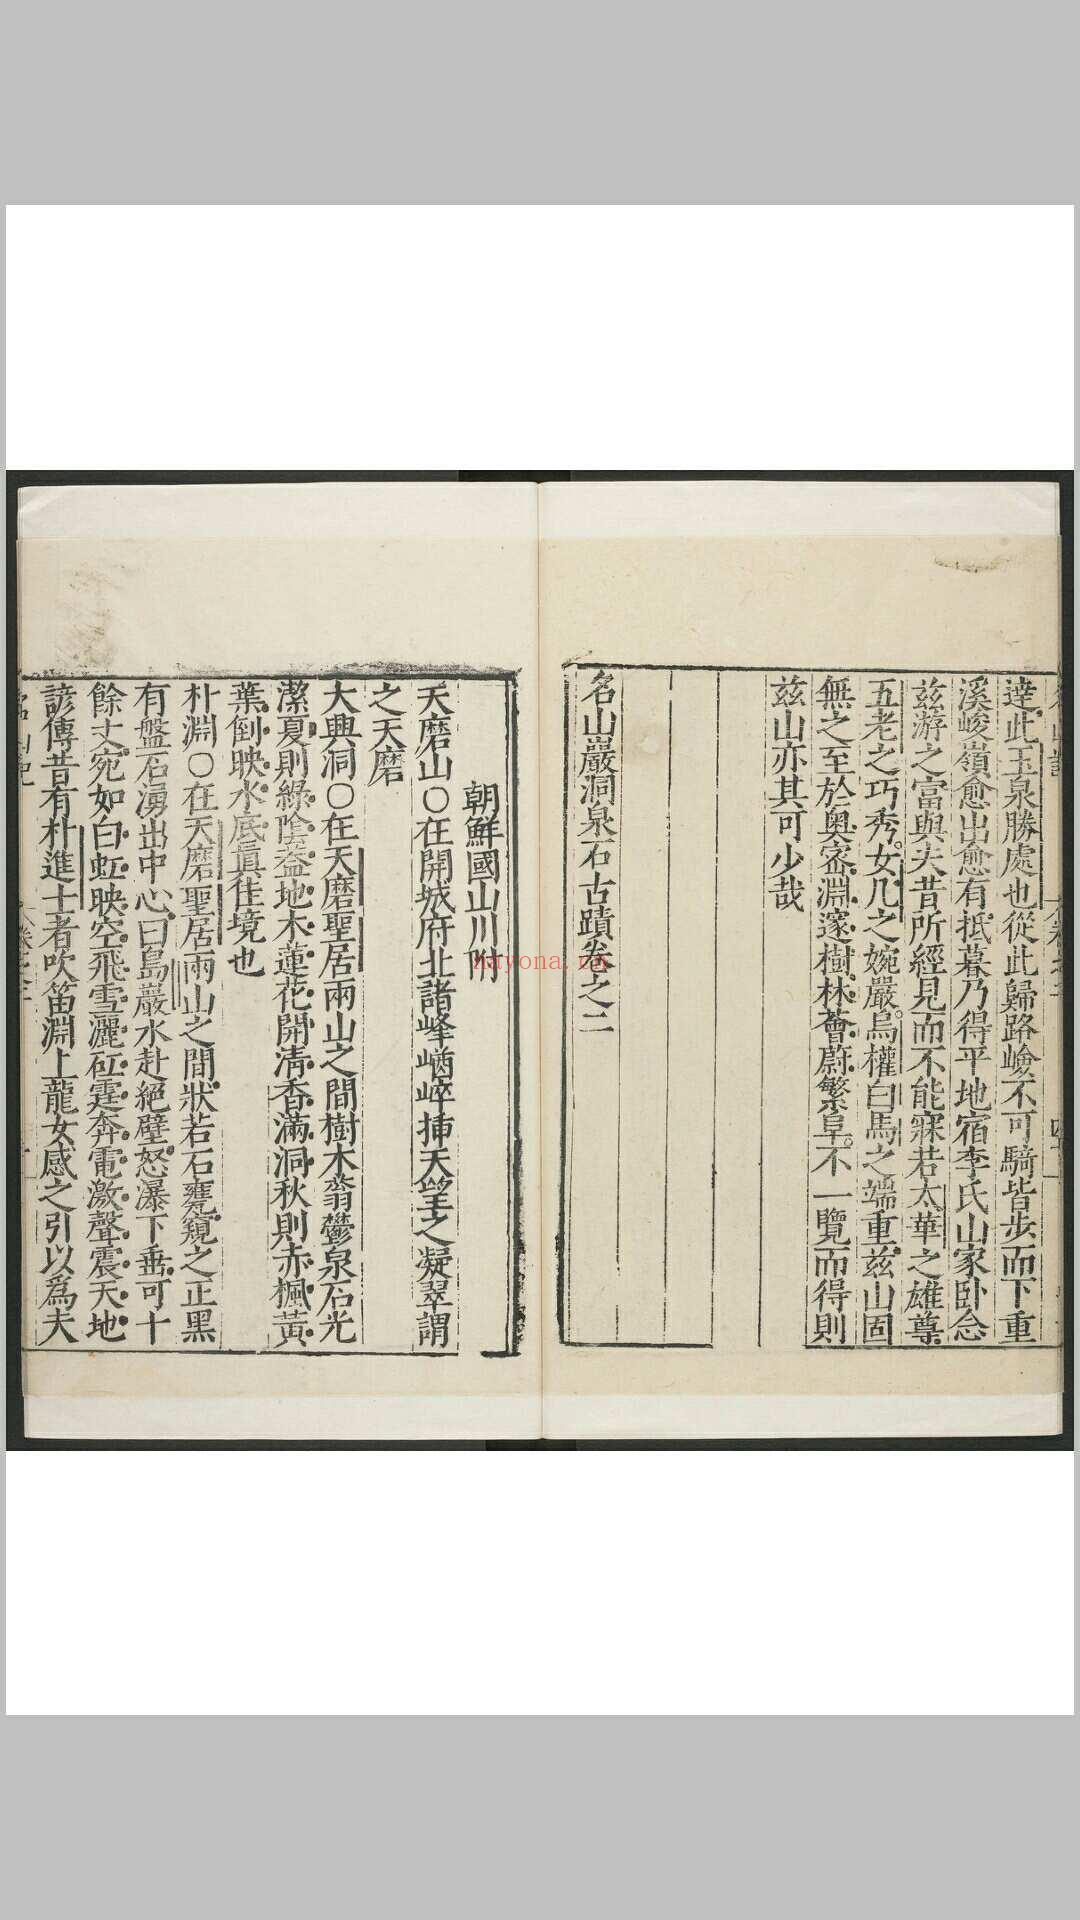 達此玉泉勝處也從此歸路嶮不可騎皆步而下重
溪峻嶺愈出愈有抵暮乃得平地宿李氏山家卧念
茲游之富與夫昔所經見而不能寐若太華之雄尊
五老之巧秀女几之婉嚴烏權白馬之端重茲山固
無之至於奥密淵邃樹林薈蔚繁阜不一覽而得則
茲山亦其可少哉
名山巖洞泉石古蹟卷之二
朝鮮國山川附
天磨山○在開城府北諸峰崷崪揷天望之凝翠謂
之天磨
大興洞○在天磨聖居兩山之間樹木蓊鬱泉石光
潔夏則綠陰葢地木蓮花開淸香滿洞秋則赤楓黃
葉倒映水底眞佳境也
朴淵○在天磨聖居兩山之間狀若石甕窺之正黑
有盤石湧出中心曰島巖水赴絕壁怒瀑下垂可十
餘丈宛如白虹映空飛雪灑矼霆奔電激聲震天地
諺傳昔有朴進士者吹笛淵上龍女感之引以爲夫
nayona.cn